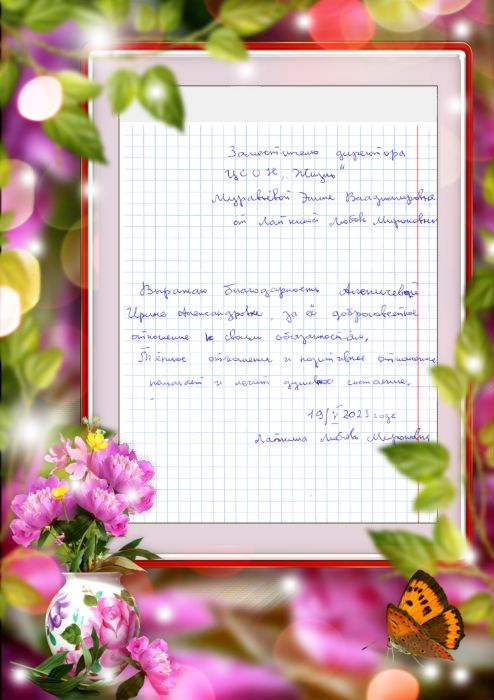 Заместителю директора
ЦСОН „Жизнь“
Муравьёвой Элине Владимировне
от Лапкиной Любовь Мироновны
Выражаю благодарность
Ирине Александровне, за её добросовестное
отношение к своим обязанностям.
Тёплое отношение и позитивное отношение
помогает и лечит душевное состояние.
19/V 2023 года
Лапкина Любовь Мироновна